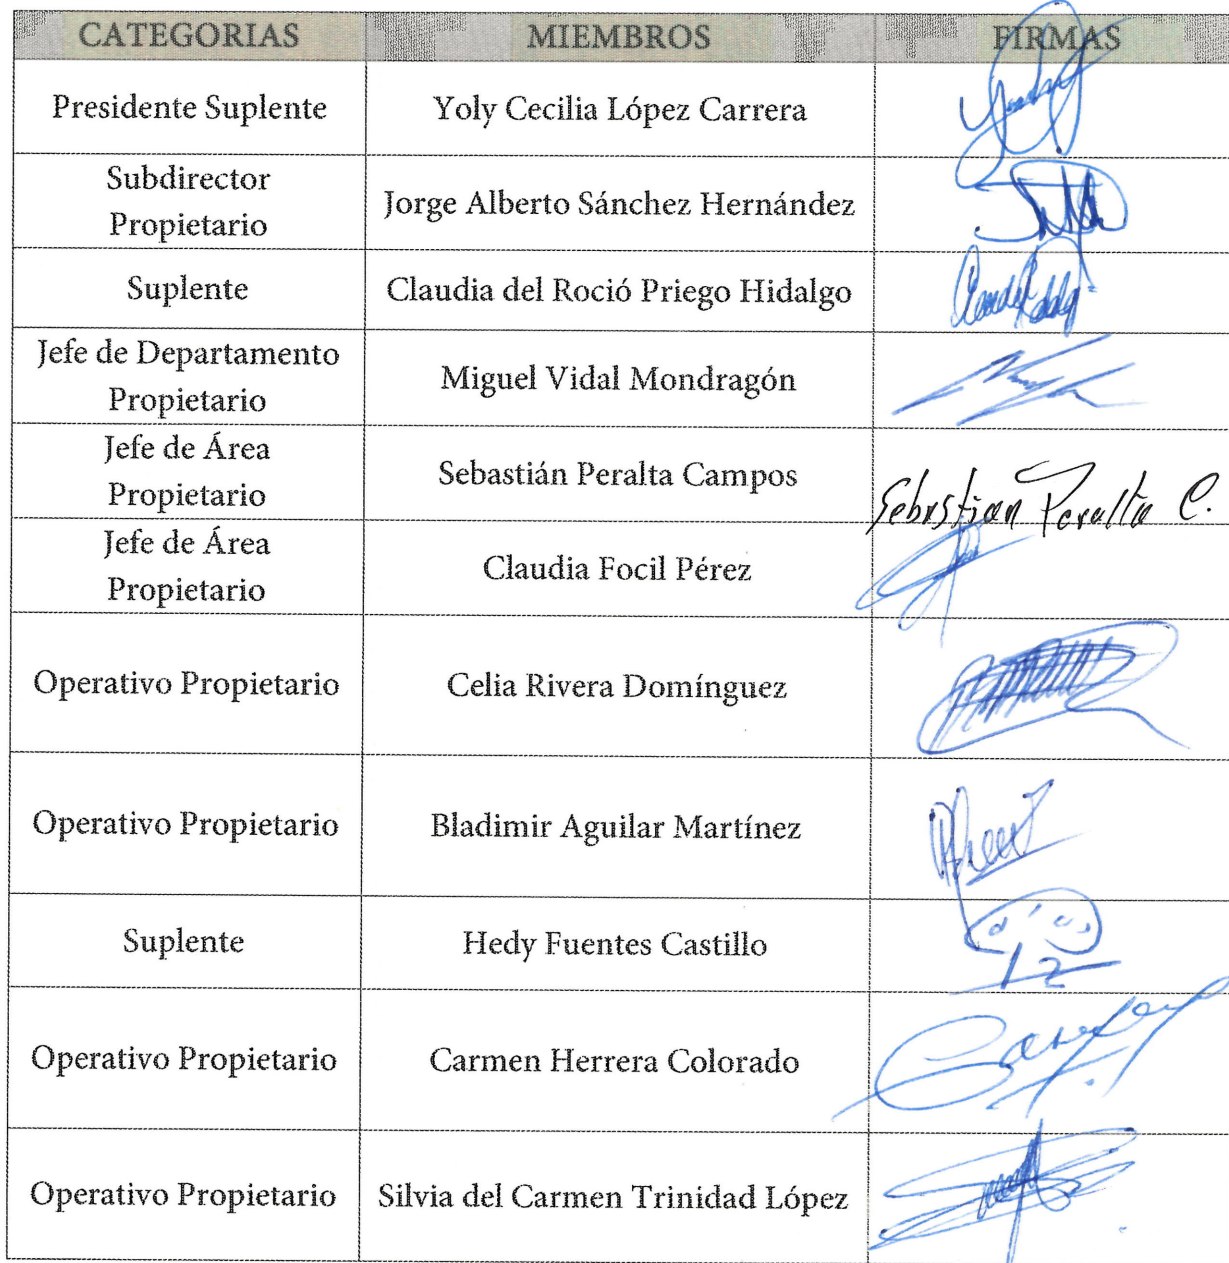 CATEGORIAS MIEMBROS FIRMAS
Presidente Suplente Yoly Cecilia López Carrera
Subdirector
Propietario Jorge Alberto Sánchez Hernández
Suplente Claudia del Roció Priego Hidalgo
Jefe de Departamento
Propietario Miguel Vidal Mondragón
Jefe de Área
Propietario Sebastián Peralta Campos Sebastian Peralta C.
Jefe de Área
Propietario Claudia Focil Pérez
Operativo Propietario Celia Rivera Domínguez
Operativo Propietario Bladimir Aguilar Martínez
Suplente Hedy Fuentes Castillo
Operativo Propietario Carmen Herrera Colorado
Operativo Propietario Silvia del Carmen Trinidad López